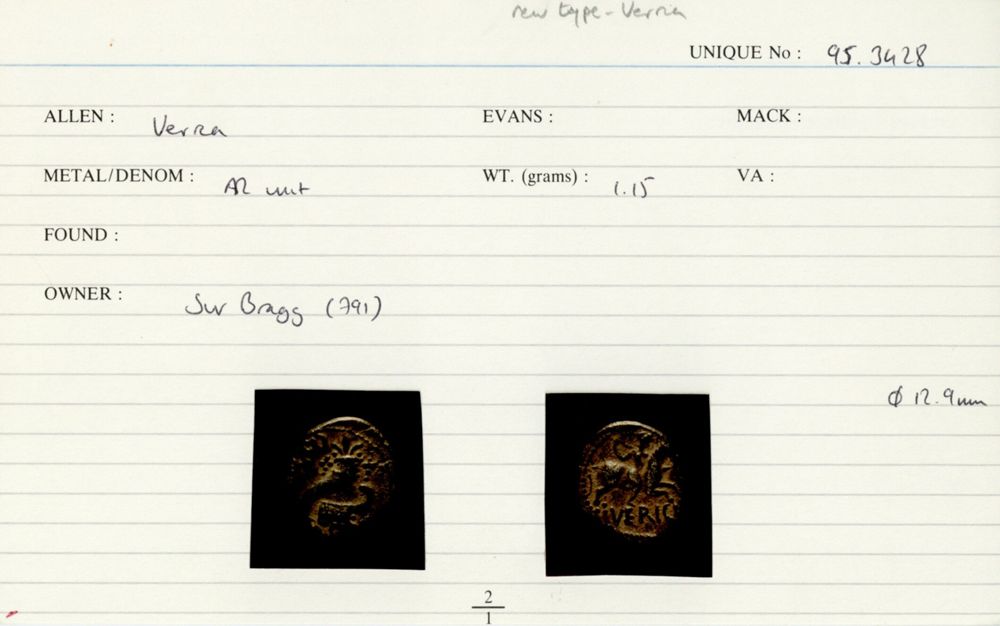 new type - Verica
UNIQUE No : 95.3428
ALLEN : Verica EVANS : MACK :
METAL/DENOM : AR unit WT. (grams) : 1.15 VA :
FOUND :
OWNER : Bragg (791)
φ 12.9mm
VERIC
2
1